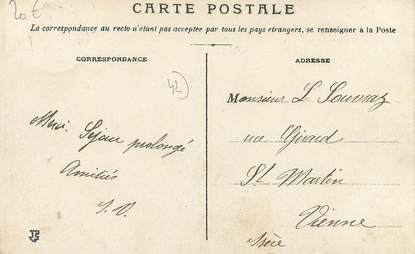 20€
CARTE POSTALE
La correspondance au recto n'étant pas acceptée par tous les pays étrangers, se renseigner à la Poste
CORRESPONDANCE
ADRESSE
42
Merci. Séjour prolongé
Amitiés
S. V.
Monsieur L. Souvraz
rue Girard
St Martin
Vienne
Isère